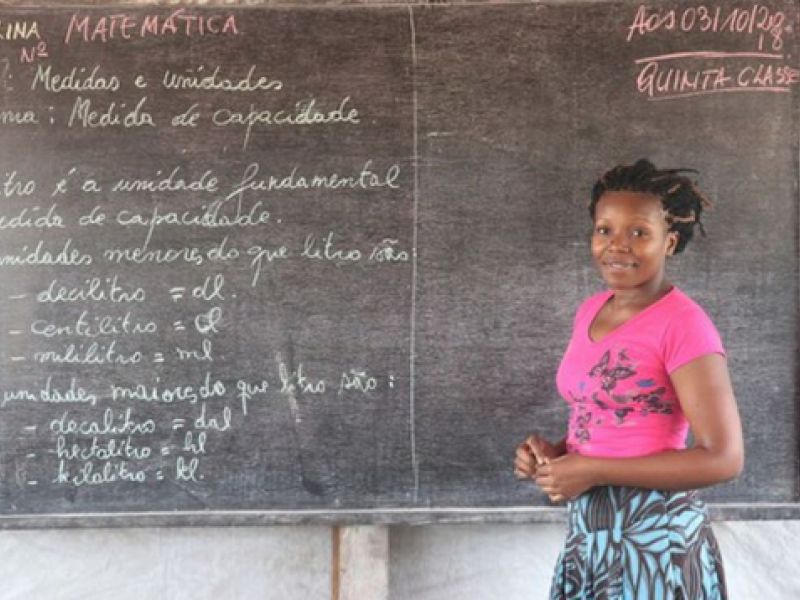 INA MATEMÁTICA
Nº
: Medidas e unidades
ma : Medida de capacidade.
tro é a unidade fundamental
edida de capacidade.
nidades menores do que litro são:
- decilitro = dl.
- centilitro = cl
- mililitro = ml.
unidades maiores do que litro são:
- decalitro = dal
- hectolitro = hl
- kilolitro = kl.
Aos 03/10/2018
QUINTA CLASSE